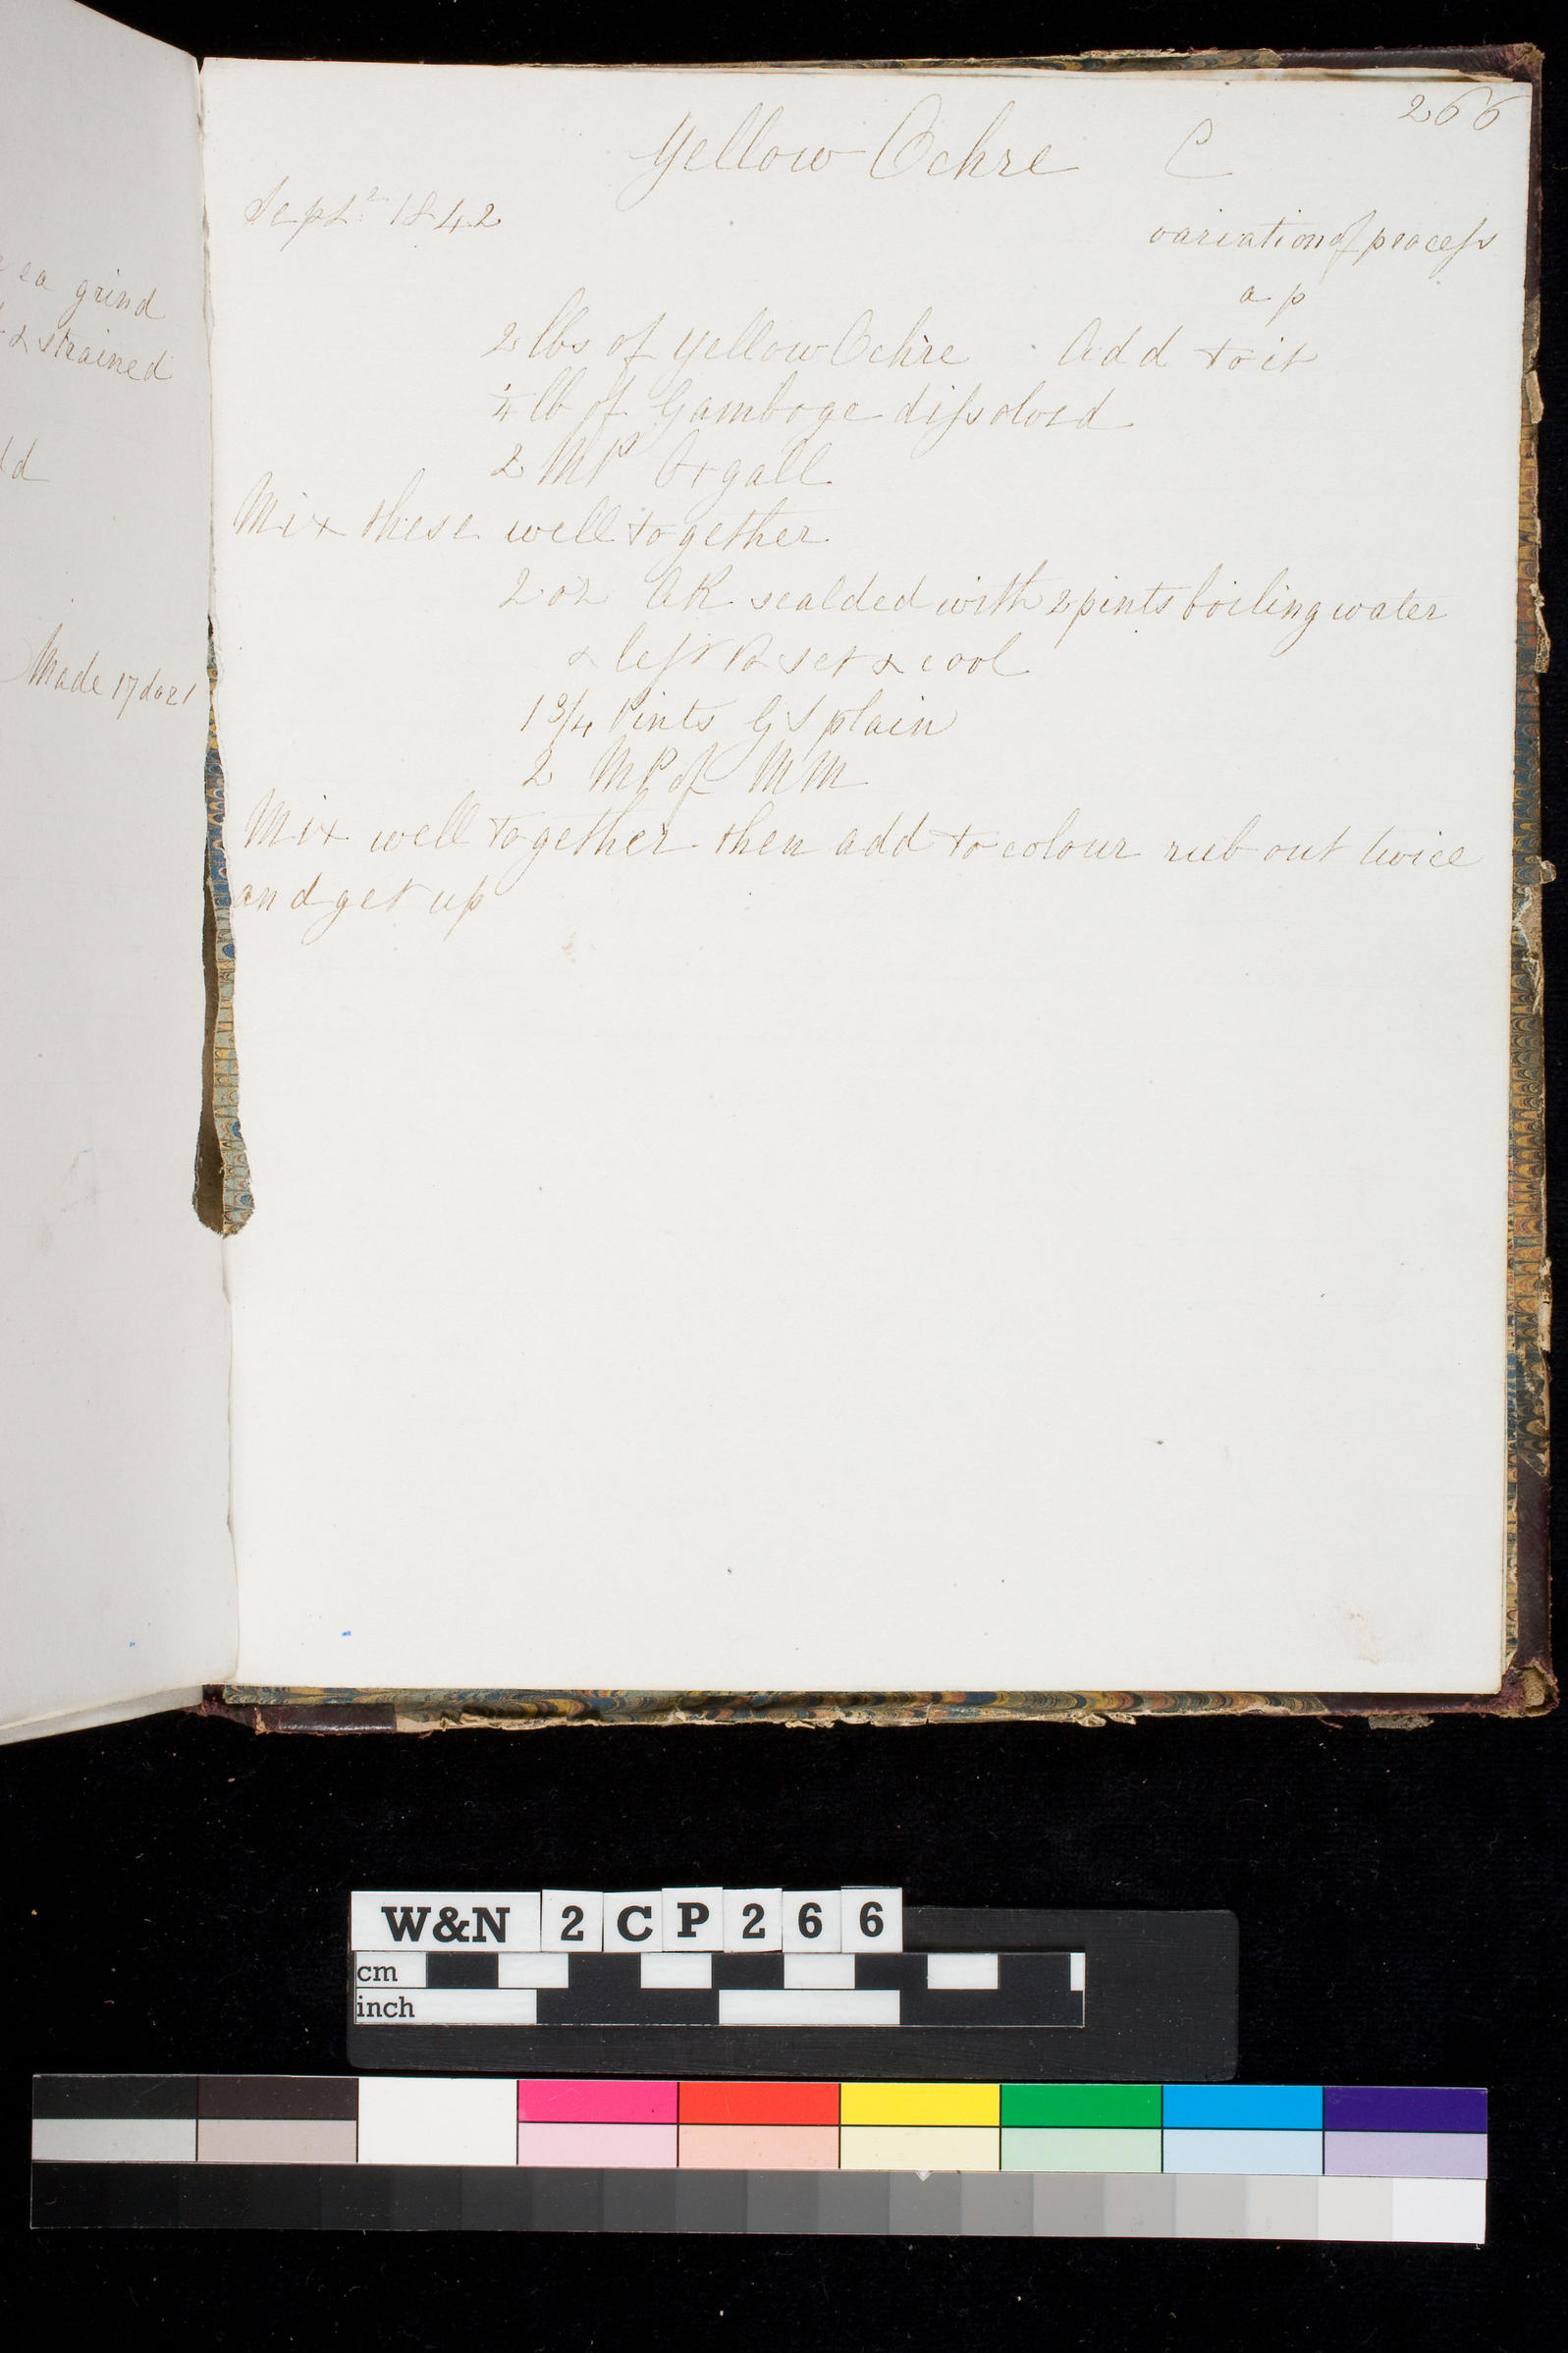 ea grind
& strained
d
Made 17 doz
266
Yellow Ochre C
Sept 2 1842
variation of process
a p
2 lbs of Yellow Ochre Add to it
1/4 lb of Gamboge dissolved
2 MP Oxgall
Mix these well together
2 oz AR scalded with 2 pints boiling water
& left to set & cool
1 3/4 Pints GS plain
2 MP of MM
Mix well together then add to colour rub out twice
and get up
W&N 2 C P 2 6 6
cm
inch